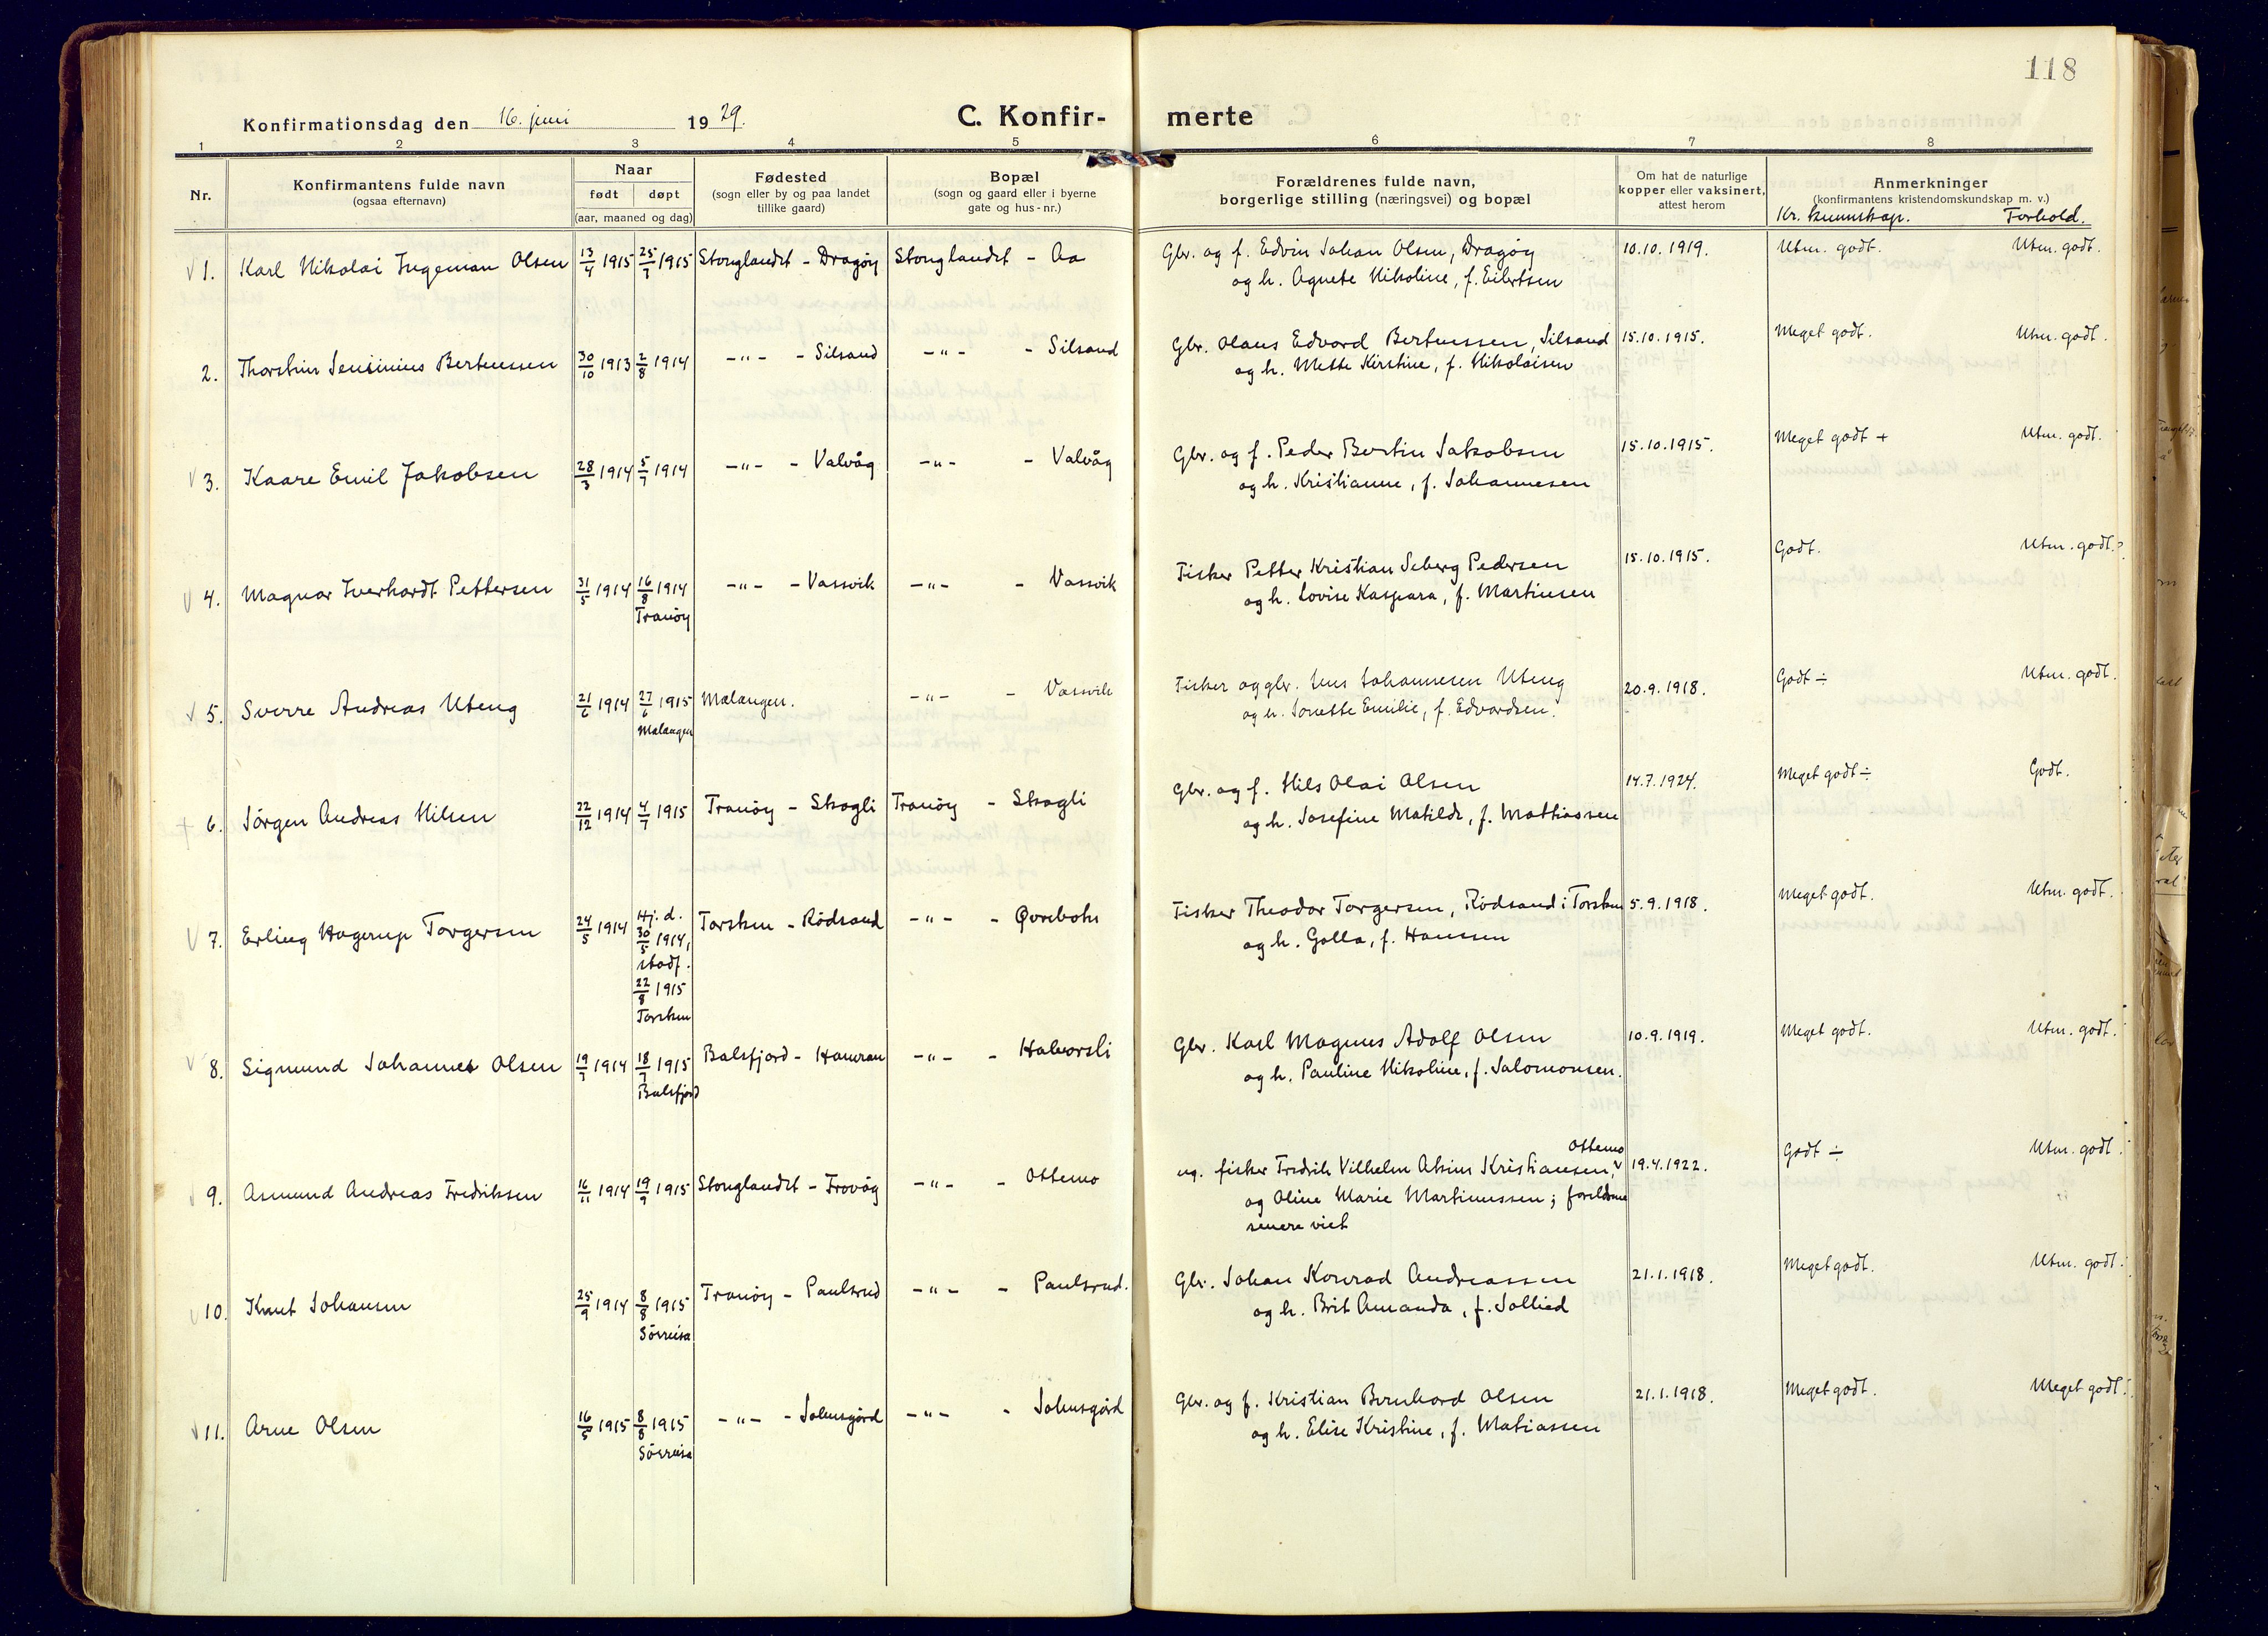 118
Konfirmationsdag den 16. juni 1929.
C. Konfirmerte
1 2 3 4 5 6 7 8
Nr.
Konfirmantens fulde navn
(ogsaa efternavn)
Naar
født døpt
(aar, maaned og dag)
Fødested
(sogn eller by og paa landet
tillike gaard)
Bopæl
(sogn og gaard eller i byerne
gate og hus-nr.)
Forældrenes fulde navn,
borgerlige stilling (næringsvei) og bopæl
Om hat de naturlige
kopper eller vaksinert,
attest herom
Anmerkninger
(konfirmantens kristendomskundskap m. v.)
Kr. kunnskap. Forhold.
1. Karl Nikolai Ingeman Olsen 13/4 1915 25/7 1915 Stonglandet - Dragøy Stonglandet - Aa Gbr. og f. Edvin Johan Olsen, Dragøy 10.10.1919. Utm. godt. Utm. godt.
og h. Agnete Nikoline, f. Eilertsen
2. Thorstein Bertenssen 30/10 1913 2/8 1914 -"- - Silsand -"- - Silsand Gbr. Olaus Edvard Bertenssen, Silsand 15.10.1915. Meget godt. Utm. godt.
og h. Mette Kirstine, f. Nikolaisen
3. Kaare Emil Jakobsen 28/3 1914 5/7 1914 -"- - Valvåg -"- - Valvåg Gbr. og f. Peder Bertin Jakobsen 15.10.1915. Meget godt + Utm. godt.
og h. Kristianne, f. Johannesen
4. Magnar Iverhardt Pettersen 31/5 1914 16/8 1914 -"- - Vassvik -"- - Vassvik Fisker Petter Kristian Seberg Pedersen 15.10.1915. Godt. Utm. godt.
Tranøy og h. Lovise Kaspara, f. Martinsen
5. Sverre Andreas Uteng 21/6 1914 27/6 1915 Malangen. -"- - Vassvik Fisker og gbr. Jens Johannesen Uteng 20.9.1918. Godt ÷ Utm. godt.
Malangen og h. Jonette Emilie, f. Edvardsen.
6. Jørgen Andreas Nilsen 22/12 1914 4/7 1915 Tranøy - Skogli Tranøy - Skogli Gbr. og f. Nils Olai Olsen 14.7.1924. Meget godt ÷ Godt.
og h. Josefine Matilde, f. Mathiassen
7. Erling Hagerup Torgersen 24/5 1914 Hj. d. Torsken - Rödsand -"- - Øvrebotn Fisker Theodor Torgersen, Rödsand i Torsken 5.9.1918. Meget godt. Utm. godt.
30/5 1914, og h. Golla, f. Hanssen
stadf.
22/8 1915
Torsken
8. Sigmund Johannes Olsen 19/7 1914 18/7 1915 Balsfjord - Hamran -"- - Halvorsli Gbr. Karl Magnus Adolf Olsen 10.9.1919. Meget godt. Utm. godt.
Balsfjord og h. Pauline Nikoline, f. Salomonsen.
Ottemo
9. Asmund Andreas Fredriksen 16/11 1914 19/9 1915 Stonglandet - Frovåg -"- - Ottemo ug. fisker Fredrik Vilhelm Kristiansen, 19.4.1922. Godt ÷ Utm. godt.
og Oline Marie Martinussen; foreldrene
senere viet
10. Knut Johansen 25/9 1914 8/8 1915 Tranøy - Paulsrud -"- - Paulsrud. Gbr. Johan Konrad Andreassen 21.1.1918. Meget godt. Utm. godt.
Sörreisa og h. Brit Amanda, f. Sollied
11. Arne Olsen 16/5 1915 8/8 1915 -"- - Johnsgård -"- - Johnsgård Gbr. og f. Kristian Bernhard Olsen 21.1.1918. Meget godt. Meget godt.
Sörreisa og h. Elise Kristine, f. Matiassen